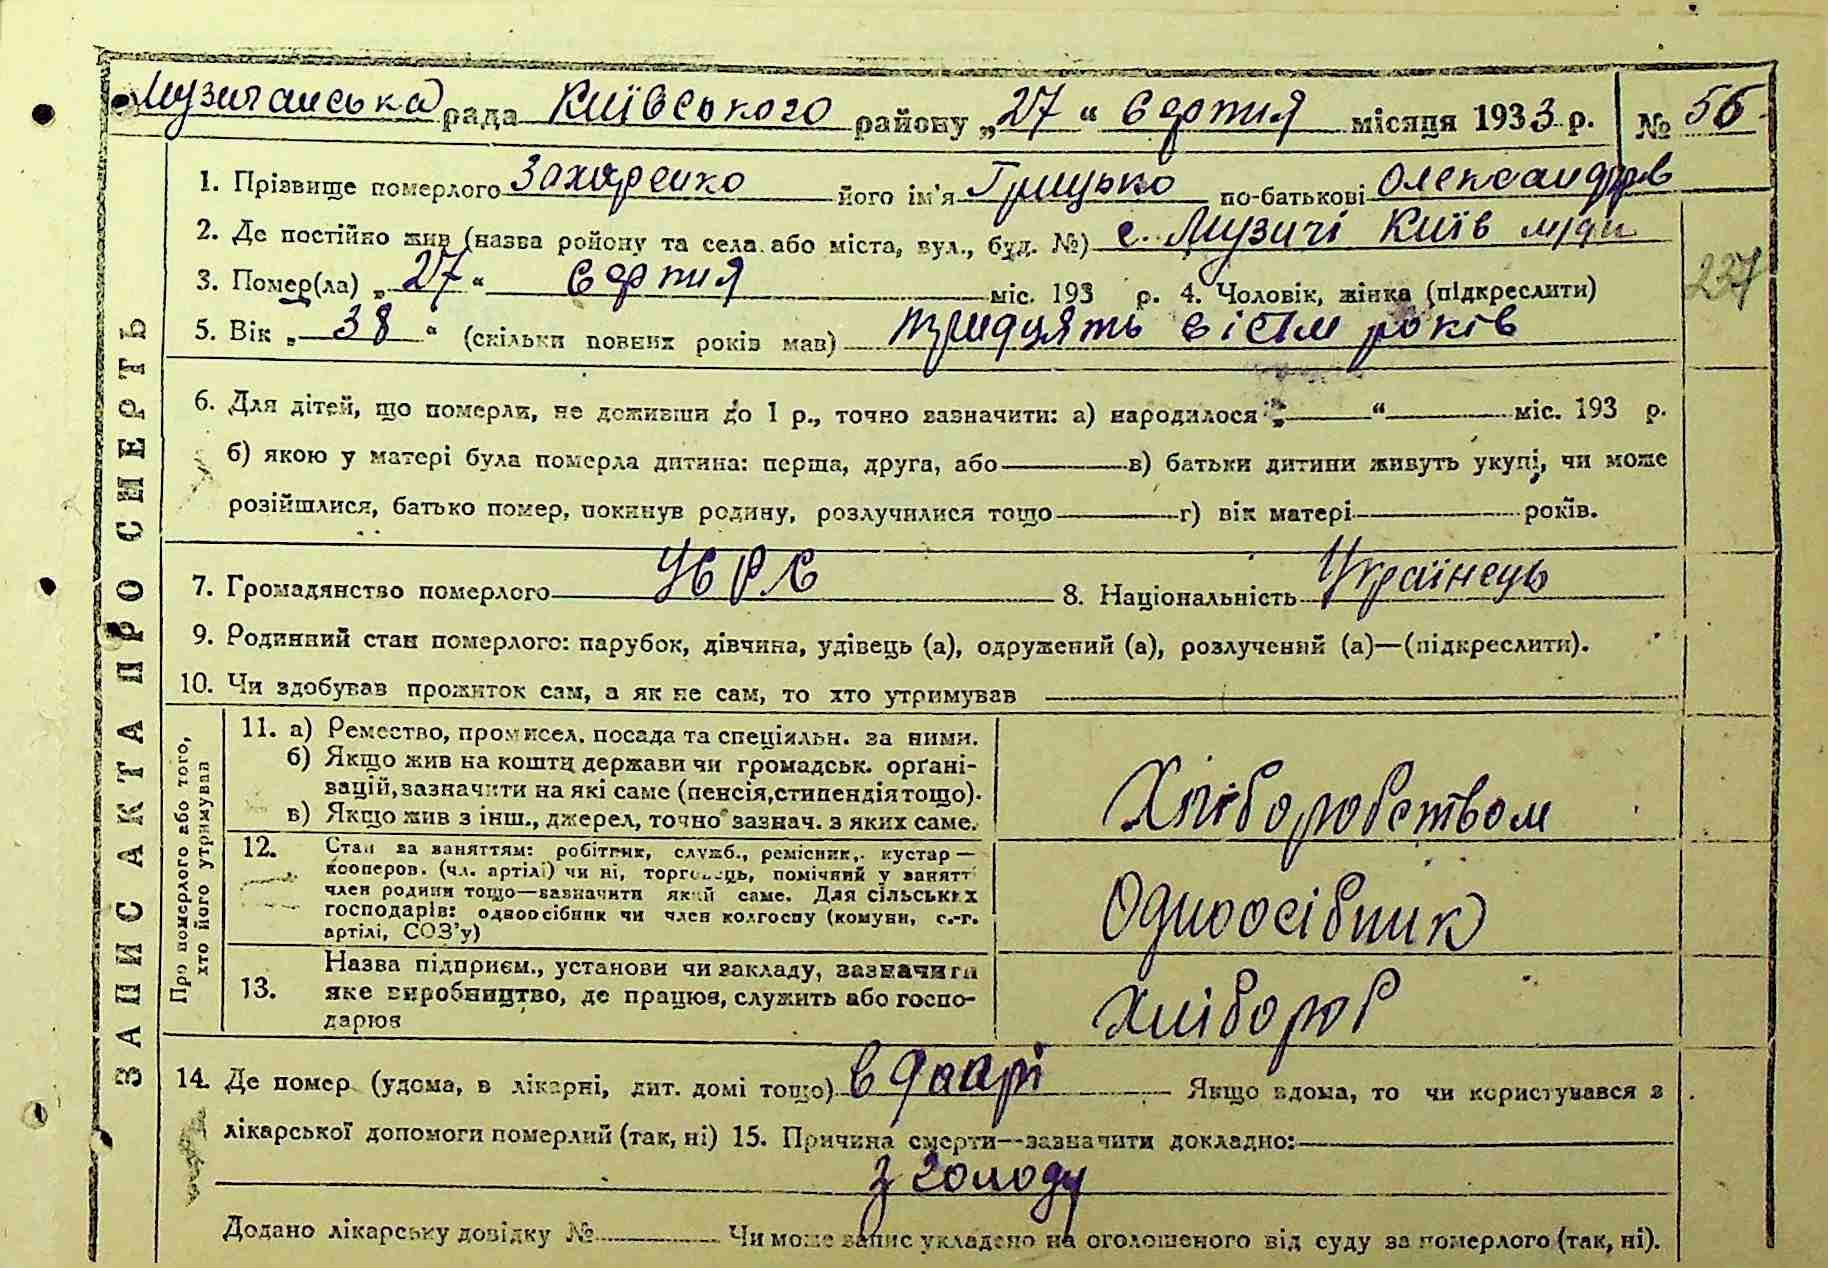 Музичанська рада Київського району „27“ серпня місяця 1933 р. № 56
1. Прізвище померлого Захаренко його ім'я Грицько по-батькові Олександров
2. Де постійно жив (назва району та села або міста, вул., буд. №) с. Музичі Київ м/ди
237
3. Помер(ла) „27“ серпня міс. 193 р. 4. Чоловік, жінка (підкреслити)
5. Вік „38“ (скільки повних років мав) тридцять вісім років
6. Для дітей, що померли, не доживши до 1 р., точно зазначити: а) народилося „ “ міс. 193 р.
б) якою у матері була померла дитина: перша, друга, або в) батьки дитини живуть укупі, чи може
розійшлися, батько помер, покинув родину, розлучилися тощо г) вік матері років.
7. Громадянство померлого УСРР 8. Національність Українець
9. Родинний стан померлого: парубок, дівчина, удівець (а), одружений (а), розлучений (а)—(підкреслити).
10. Чи здобував прожиток сам, а як не сам, то хто утримував
ЗАПИС АКТА ПРО СМЕРТЬ
Про померлого або того,
хто його утримував
11. а) Ремество, промисел, посада та спеціяльн. за ними.
б) Якщо жив на кошти держави чи громадськ. орґані-
зацій, зазначити на які саме (пенсія, стипендія тощо).
в) Якщо жив з інш., джерел, точно зазнач. з яких саме.
Хліборобством
12. Стан за заняттям: робітник, служб., ремісник, кустар —
кооперов. (чл. артілі) чи ні, торговець, помічний у занятті
член родини тощо—зазначити який саме. Для сільських
господарів: одноосібник чи член колгоспу (комуни, с.-г.
артілі, СОЗ'у)
Одноосібник
13. Назва підприєм., установи чи закладу, зазначити
яке виробництво, де працює, служить або госпо-
дарює
Хлібороб
14. Де помер (удома, в лікарні, дит. домі тощо) в Якщо вдома, то чи користувався з
лікарської допомоги померлий (так, ні) 15. Причина смерти—зазначити докладно:
з голоду
Додано лікарську довідку № Чи може запис укладено на оголошеного від суду за померлого (так, ні).